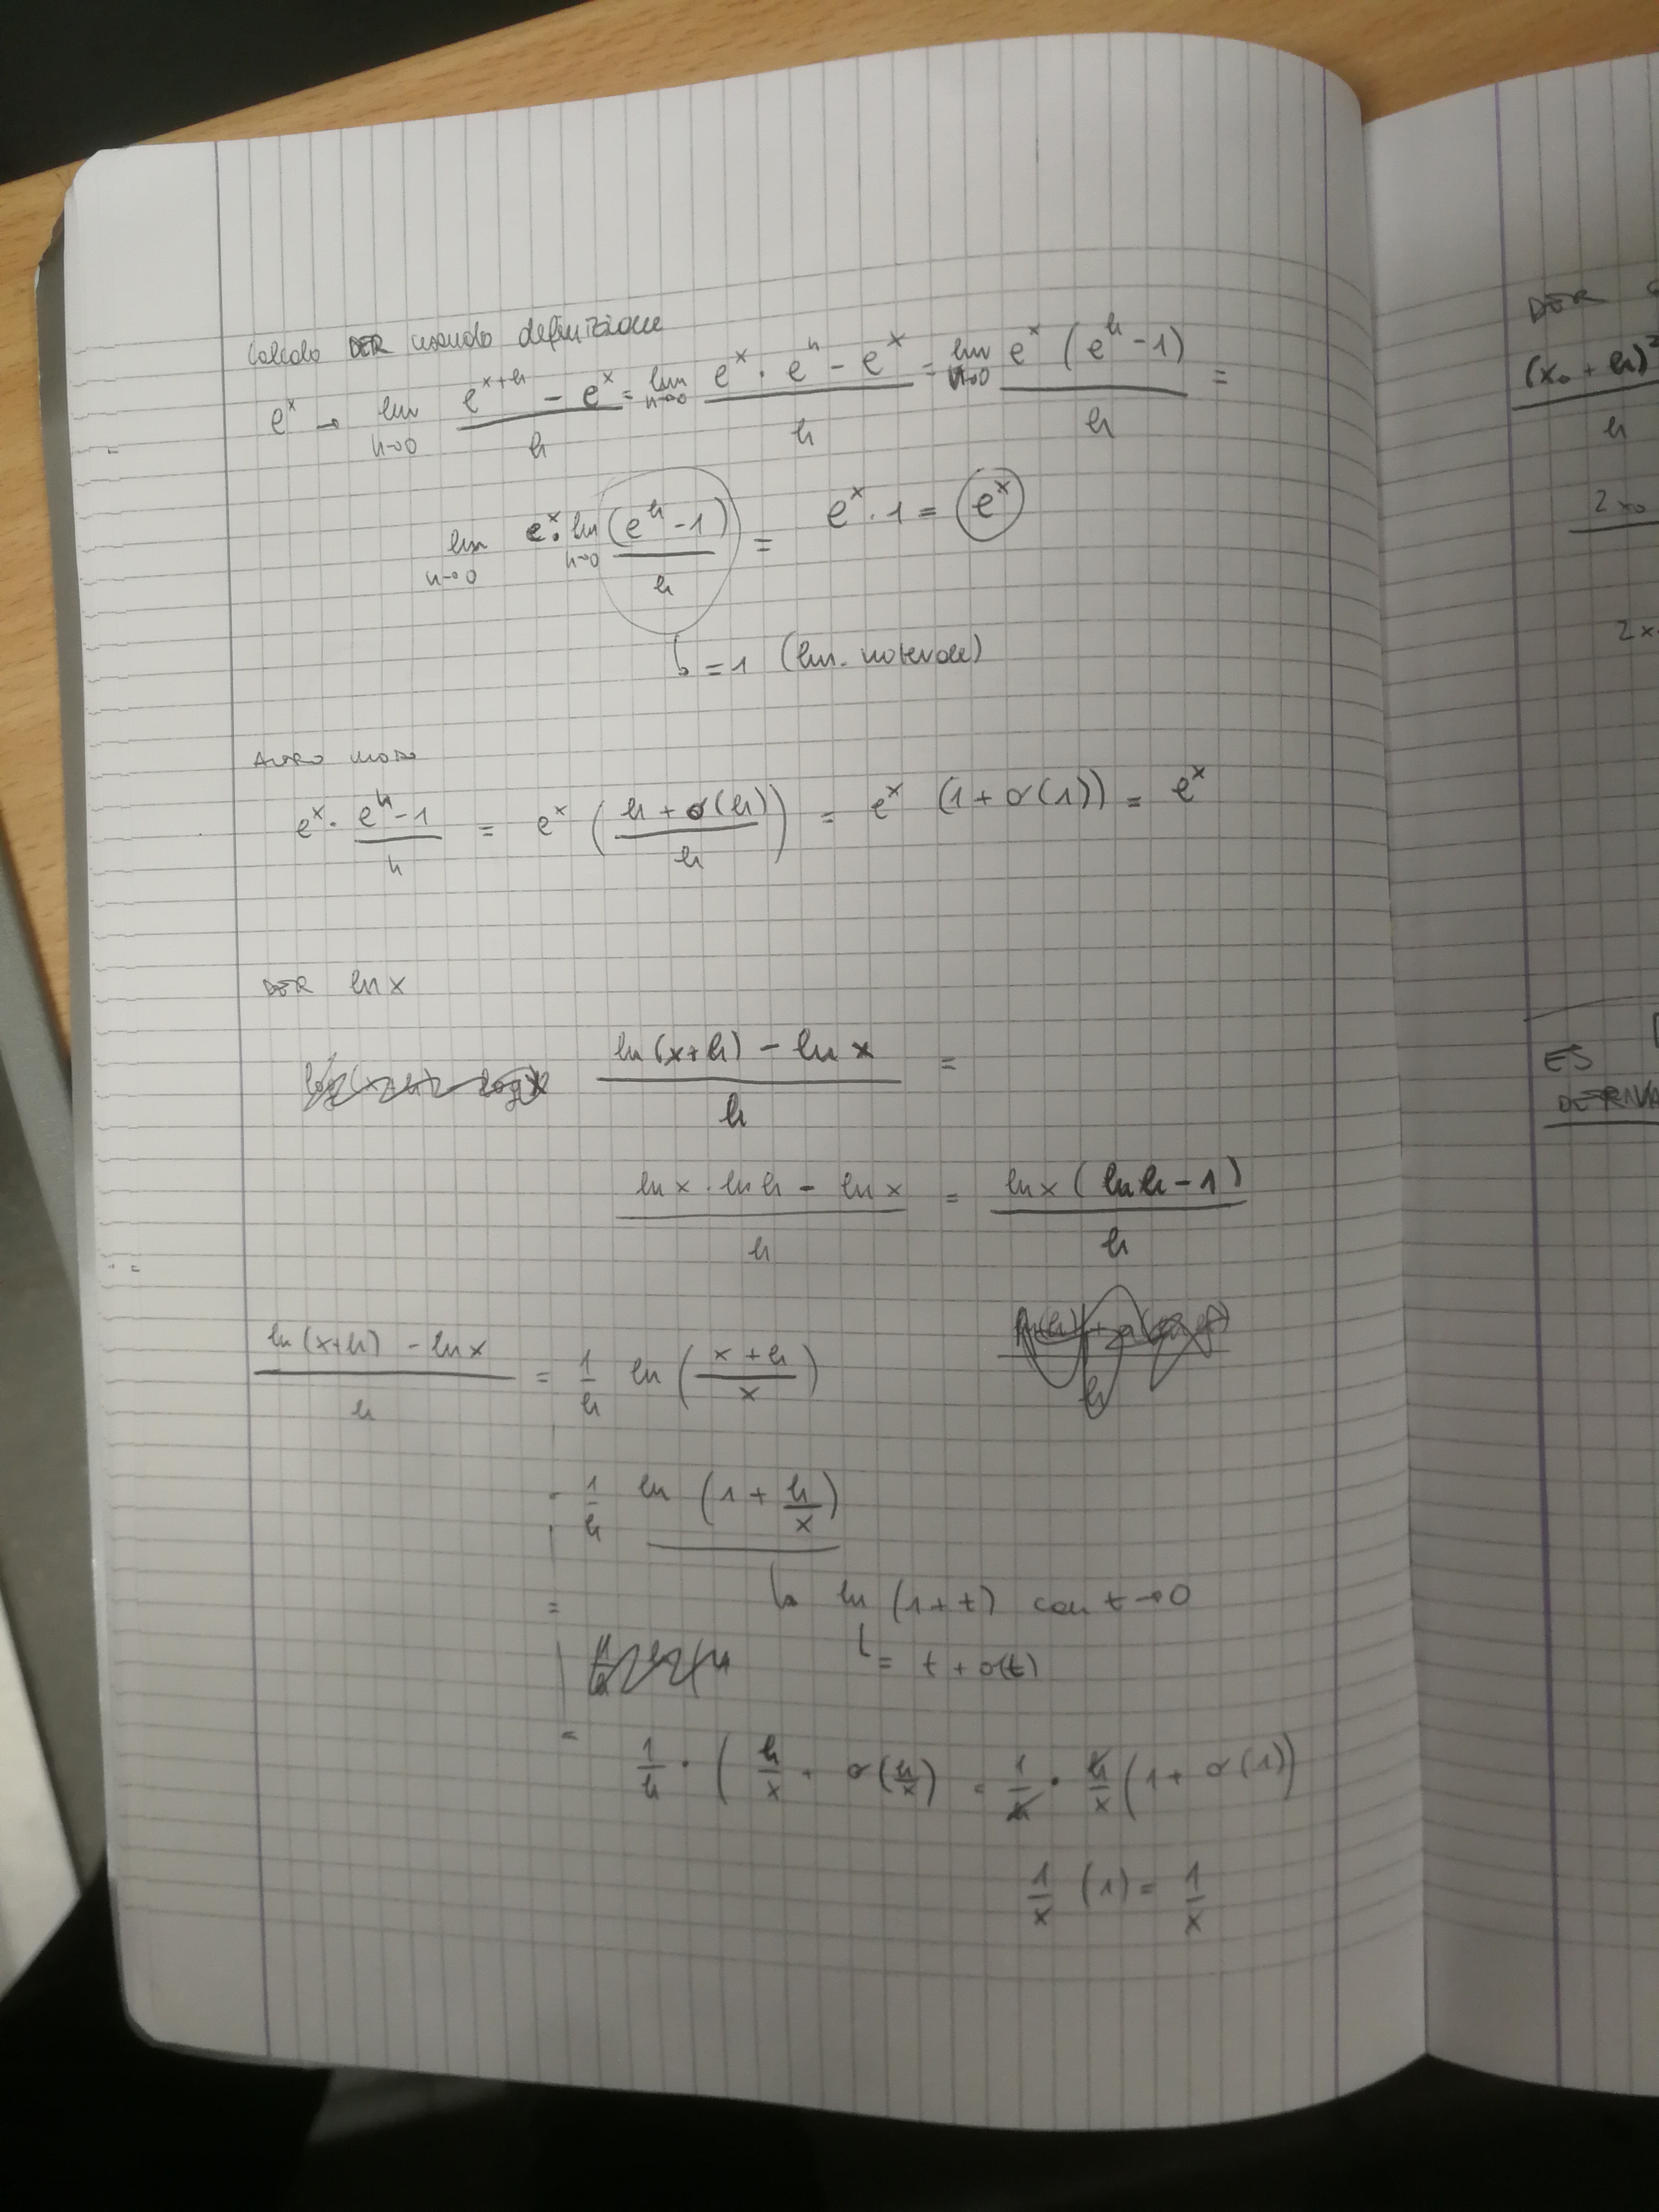 Calcolo DER usando definizione
e^x → lim h→0 (e^(x+h) - e^x)/h = lim h→0 (e^x · e^h - e^x)/h = lim h→0 e^x (e^h - 1)/h =
lim h→0 e^x · lim h→0 (e^h - 1)/h = e^x · 1 = e^x
↳ = 1 (lim. notevole)
ALTRO MODO
e^x · (e^h - 1)/h = e^x ((h + o(h))/h) = e^x (1 + o(1)) = e^x
DER ln x
(ln(x+h) - ln x)/h =
(ln x · ln h - ln x)/h = ln x (ln h - 1)/h
(ln(x+h) - ln x)/h = 1/h ln((x+h)/x)
= 1/h ln(1 + h/x)
= ↳ ln(1+t) con t→0
↳ = t + o(t)
= 1/h · (h/x + o(h/x) = 1/h · h/x (1 + o(1))
1/x (1) = 1/x
DER
(x₀ + h)²
h
2x₀
2x
ES
DERIVA